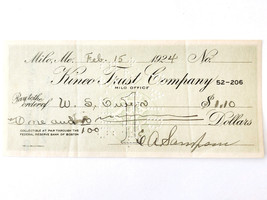 Milo, Me. Feb. 15 1924 No.
Kineo Trust Company 52-206
MILO OFFICE
Pay to the order of W. S. Owen $1.10
One and 10/100 Dollars
COLLECTIBLE AT PAR THROUGH THE
FEDERAL RESERVE BANK OF BOSTON
E A Sampson